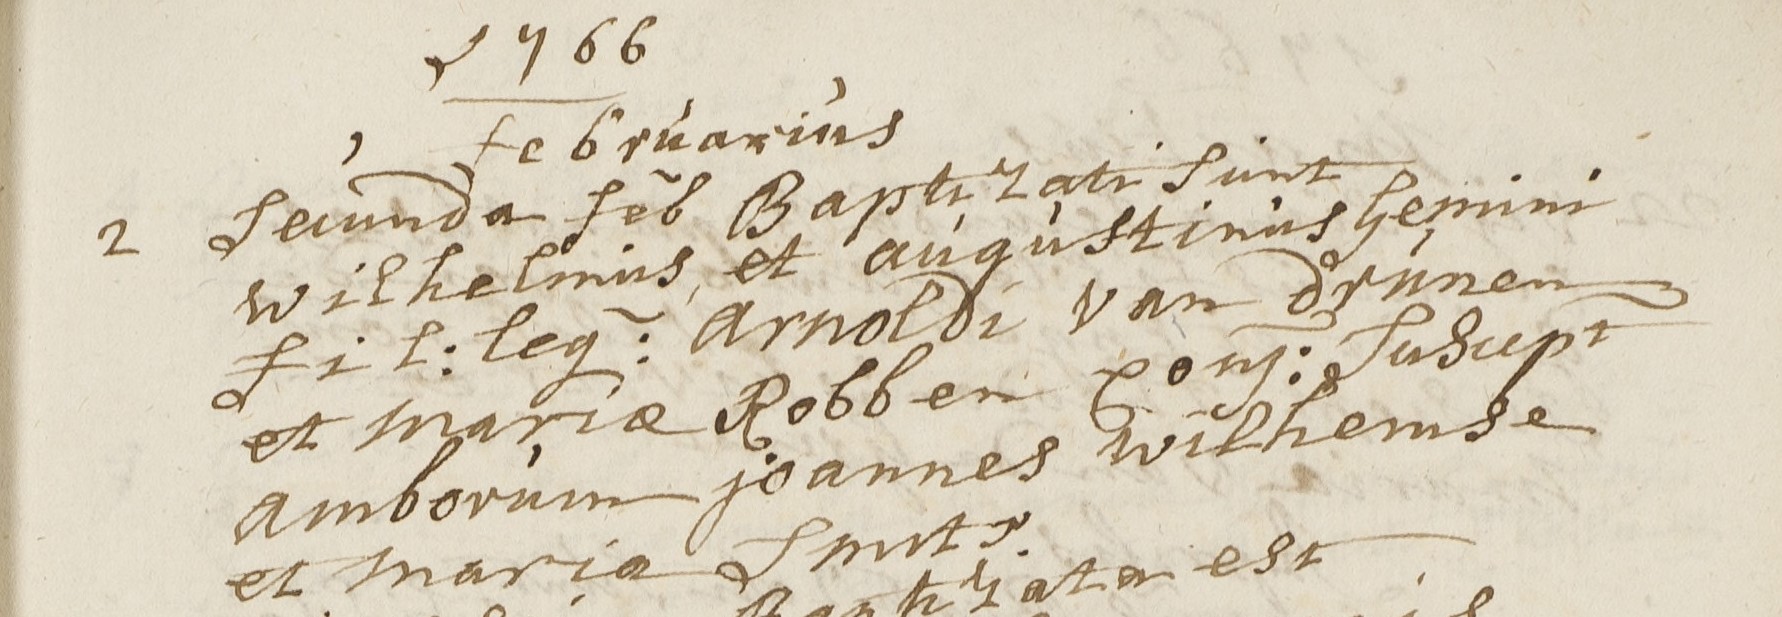 1766
februarius
2 Secunda feb Baptizati sunt
wilhelmus, et augustinus gemini
fil: leg: Arnoldi van drunen
et mariæ Robben conj: Suscept
amborum joannes wilhemse
et maria Smits.
Baptizata est